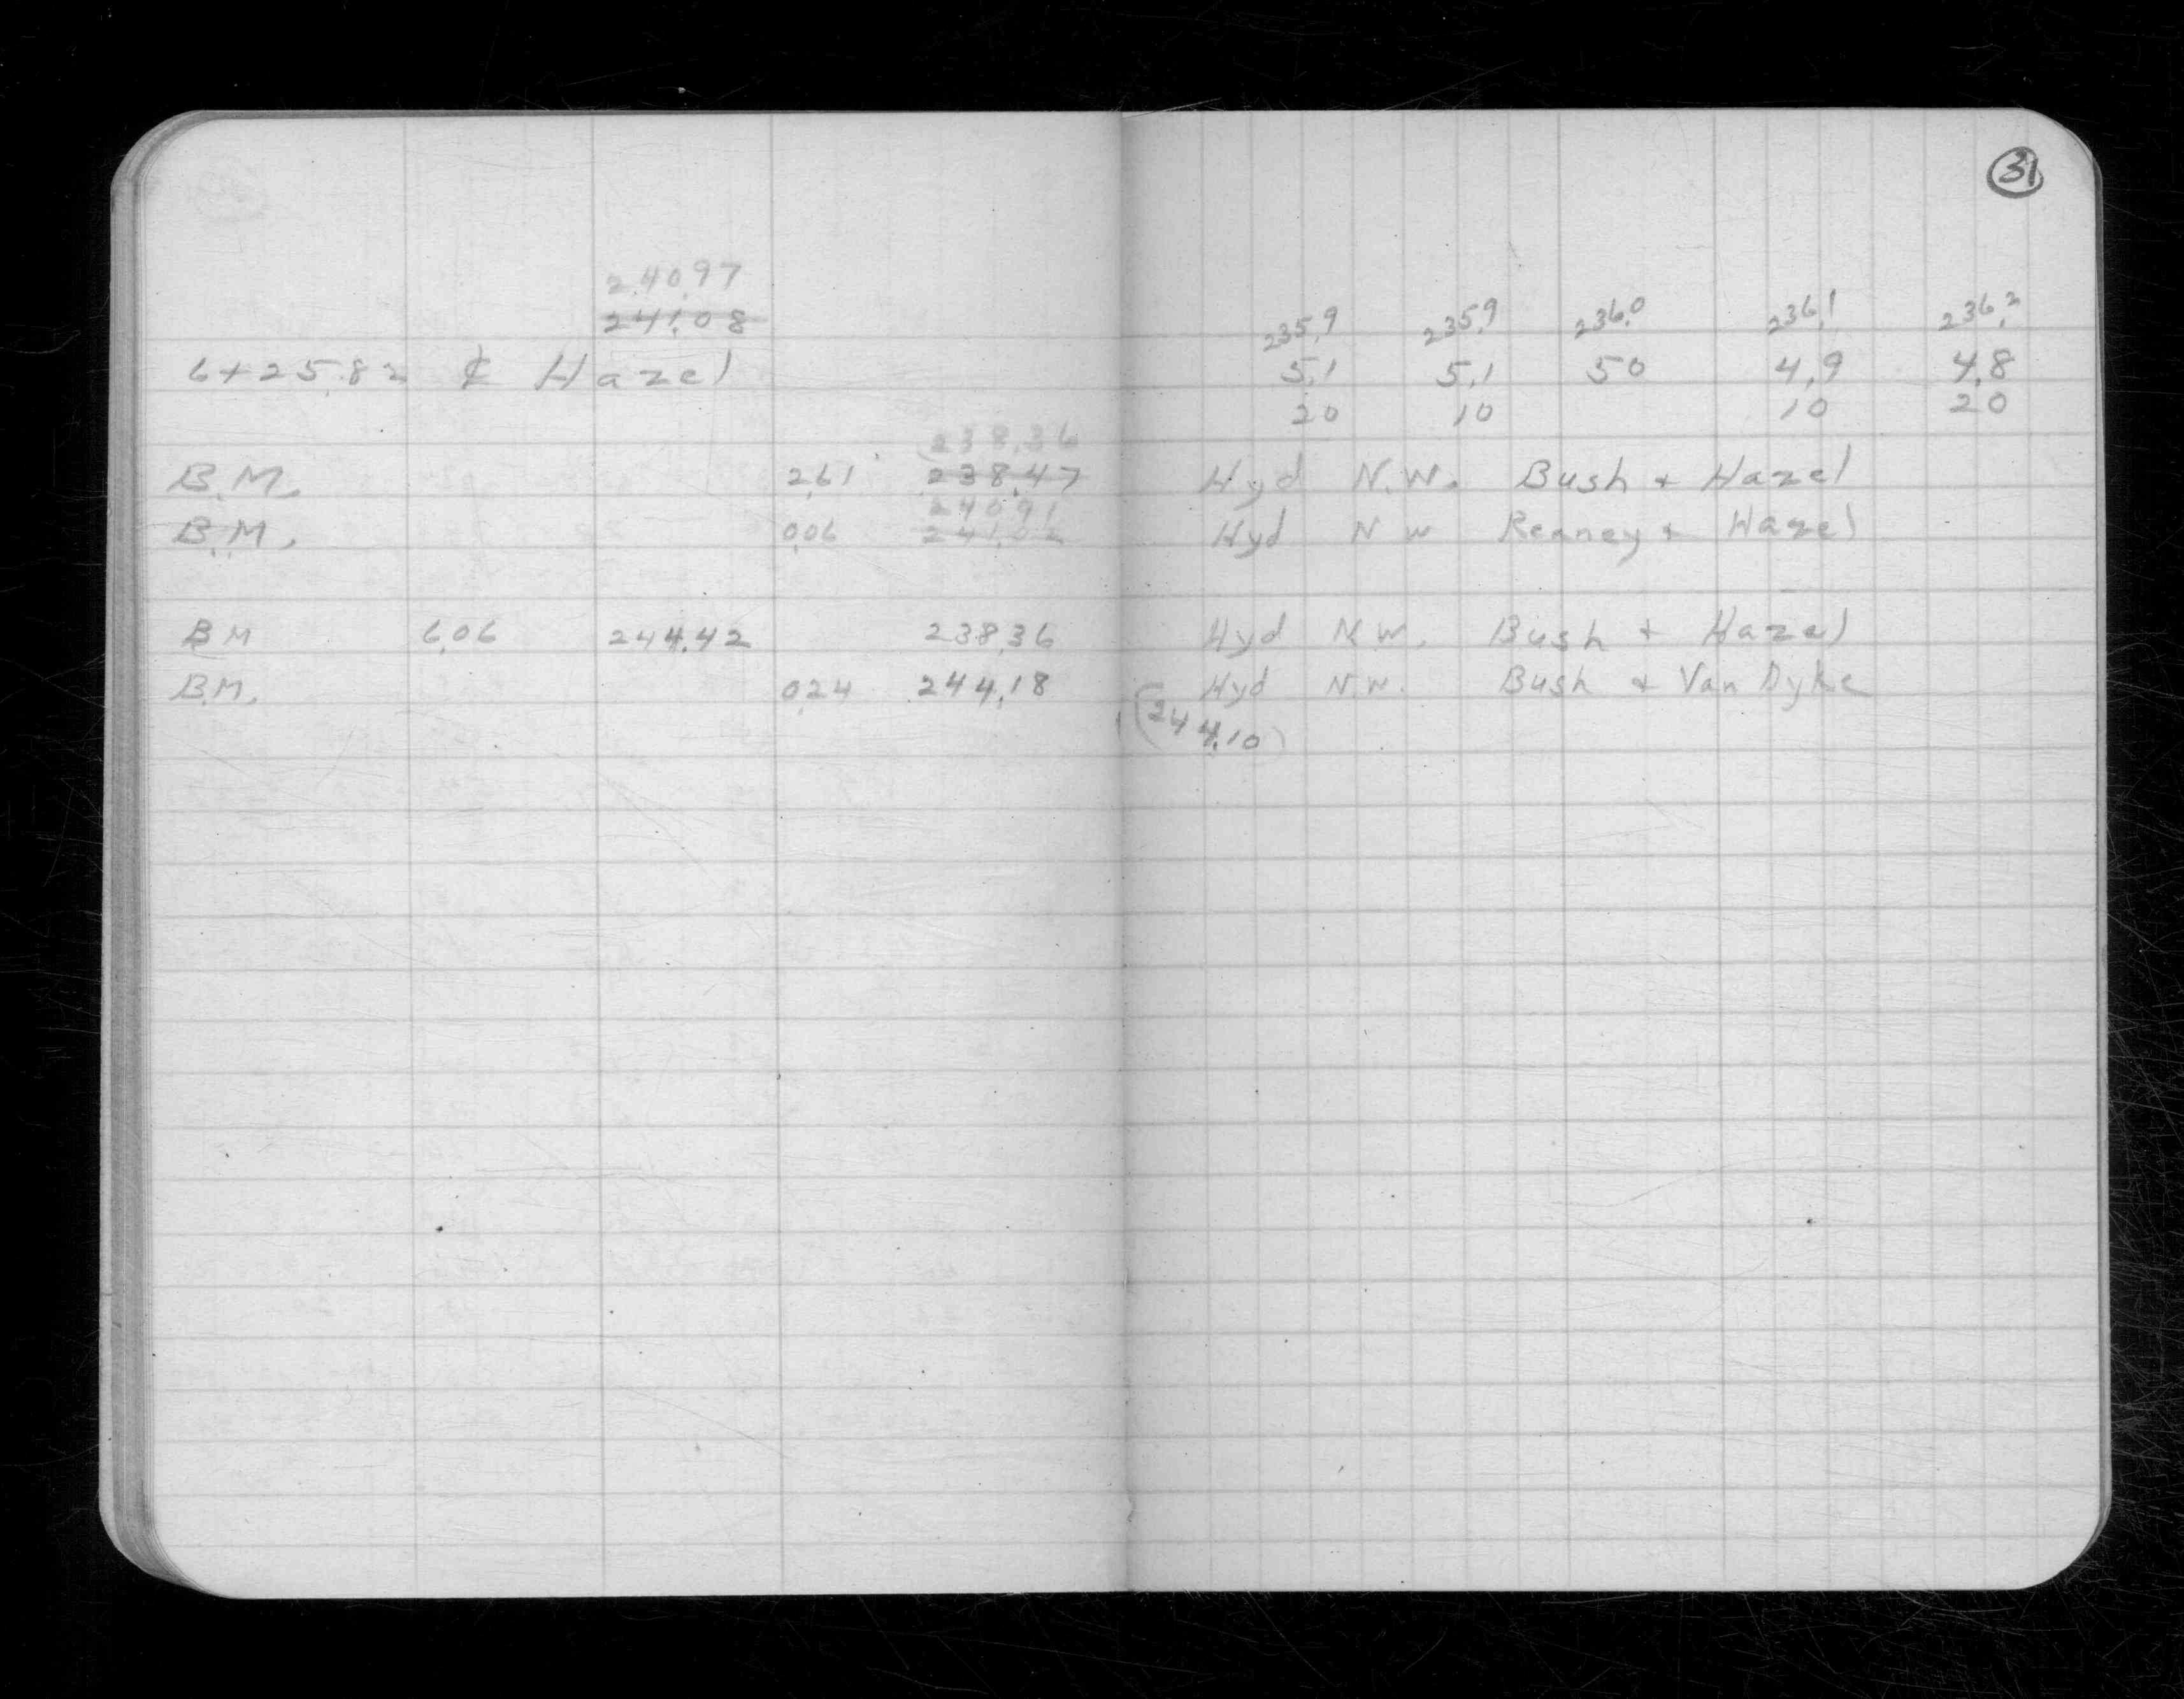 31
240.97
241.08
235.9 235.9 236.0 236.1 236.2
6+25.82 ℄ Hazel 5.1 5.1 50 4.9 4.8
20 10 10 20
238.36
B.M. 2.61 238.47 Hyd N.W. Bush + Hazel
240.91
B.M. 0.06 241.02 Hyd N W Reaney + Hazel
BM 6.06 244.42 238.36 Hyd N.W. Bush + Hazel
B.M. 0.24 244.18 Hyd N.W. Bush + Van Dyke
(244.10)